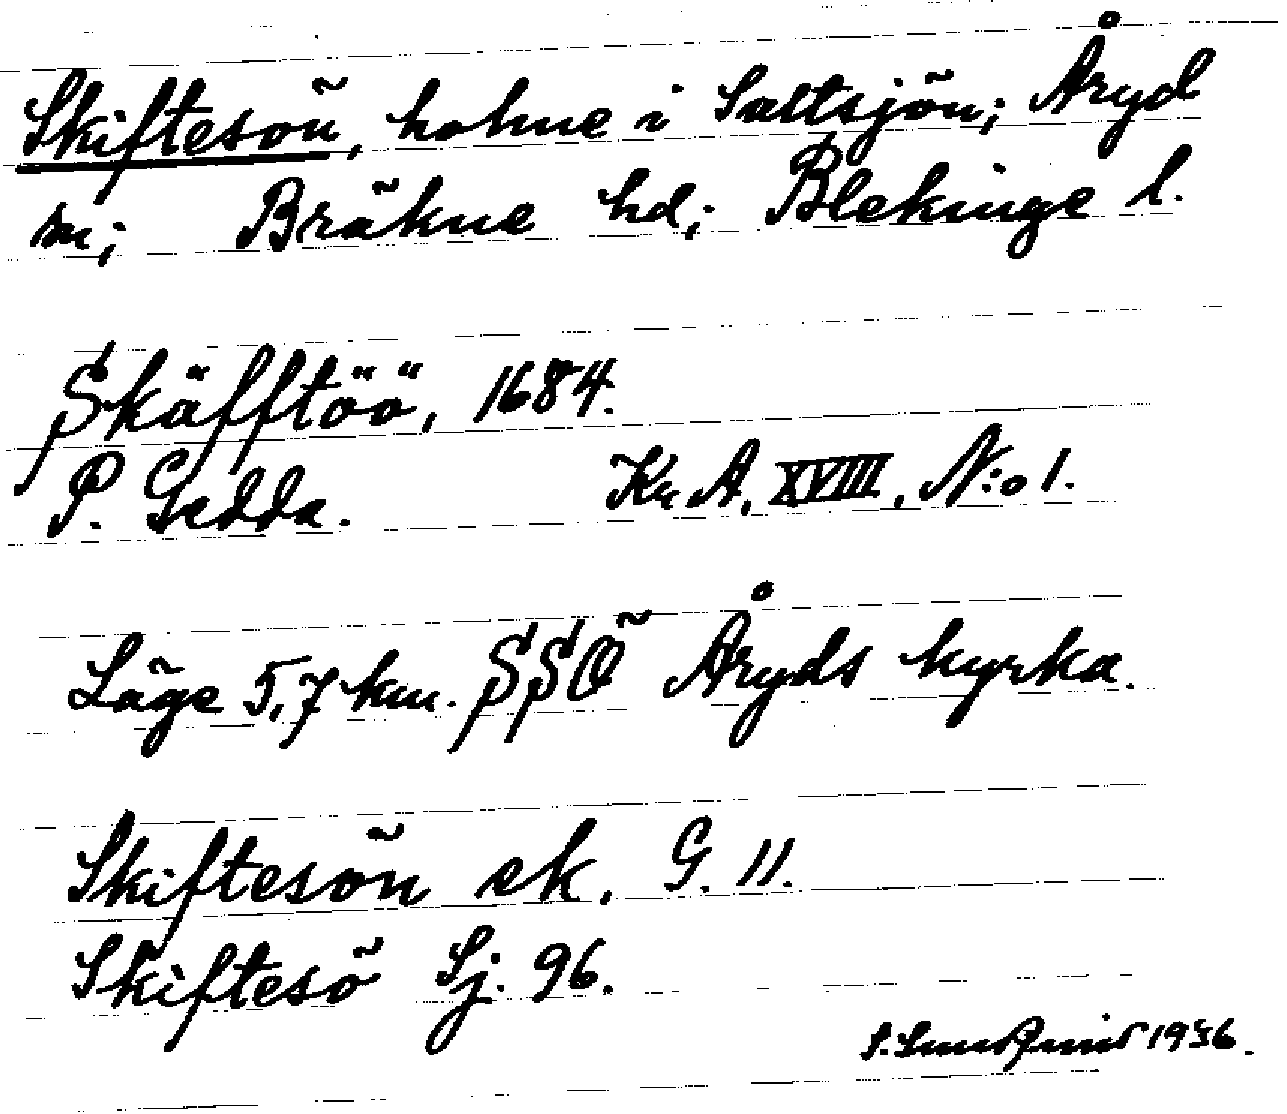 Skiftesön, holme i Saltsjön; Åryd
sn; Bräkne hd; Blekinge l.
Skäfftöö, 1684.
P. Gedda. Kr. A. XVIII, N:o 1.
Läge 5,7 km. SSÖ Åryds kyrka.
Skiftesön ek. G. 11.
Skiftesö Sj. 96.
1936.